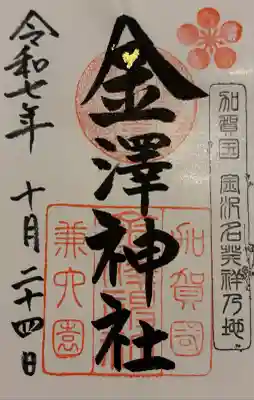 加賀国 金沢名発祥乃地
金澤神社
加賀国
兼六園
令和七年 十月二十四日